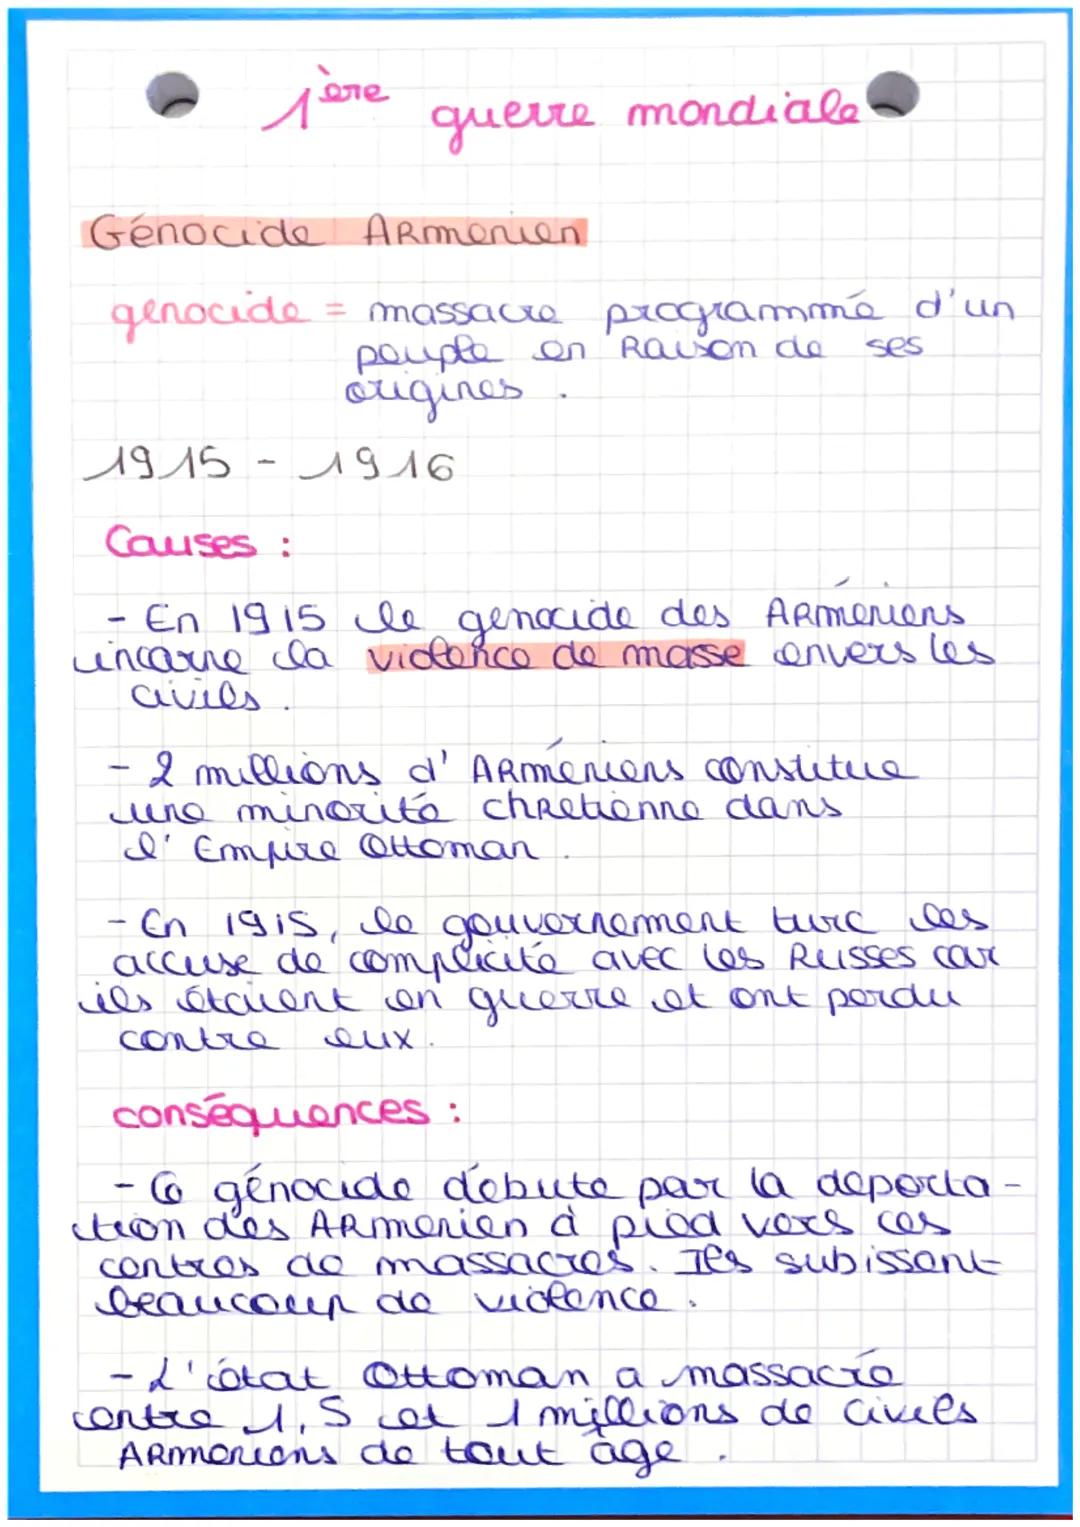 1ère guerre mondiale
Génocide Arménien
génocide = massacre programmé d'un
peuple en Raison de ses
origines.
1915 - 1916
Causes :
- En 1915 le génocide des Arméniens
incarne la violence de masse envers les
civils.
- 2 millions d'Arméniens constitue
une minorité chRetienne dans
l'Empire Ottoman.
- En 1915, le gouvernement turc les
accuse de complicité avec les Russes car
ils étaient en guerre et ont perdu
contre eux.
conséquences :
- Ce génocide débute par la deporta-
tion des Armenien à pied vers ces
centres de massacres. Ils subissent
beaucoup de violence.
- L'état Ottoman a massacré
entre 1,5 et 1 millions de civils
Armeniens de tout âge.